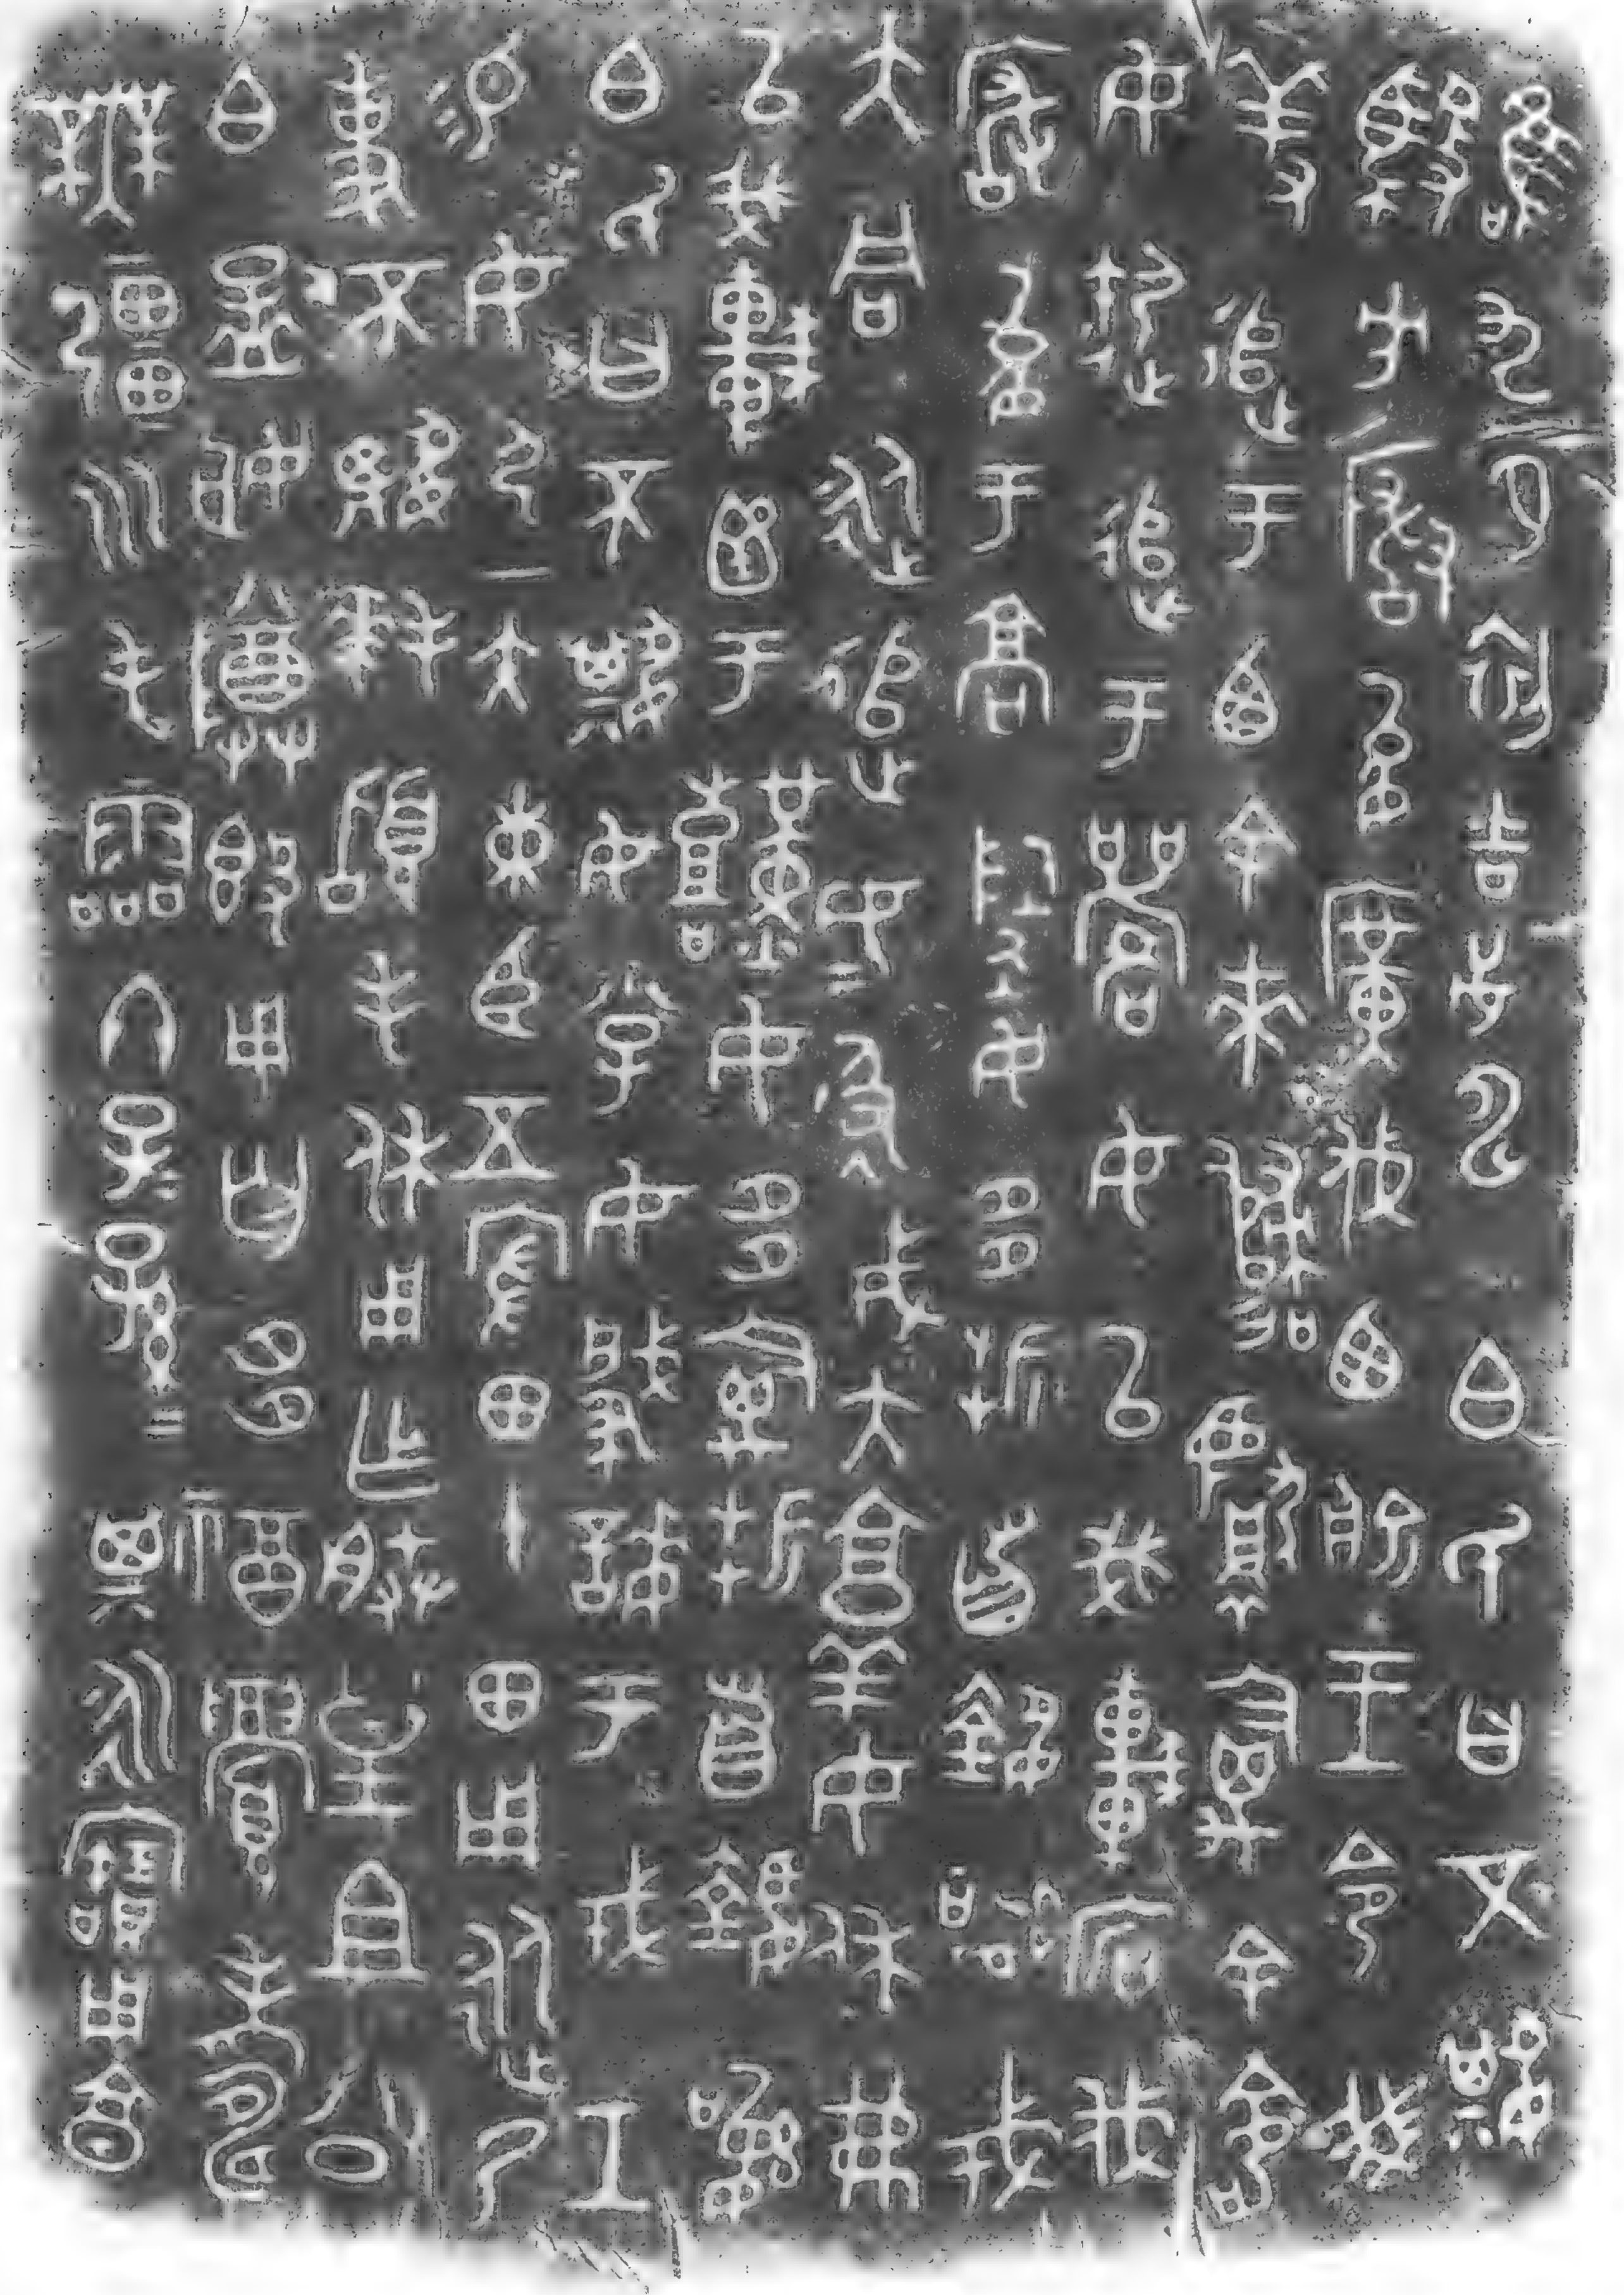 唯九月初吉戊申白氏曰不𡢁
馭方玁狁廣伐西俞王令我
羞追于西余來歸獻禽余命
女御追于𩁹女以我車宕伐
玁狁于高陶女多折首執訊戎
大同從追女女彶戎大敦搏女休弗
以我車函于艱女多禽折首執訊
白氏曰不𡢁女小子女肇誨于戎工
易女弓一矢束臣五家田十田用從乃
事不𡢁拜稽手休用乍朕皇祖公
白孟姬尊簋用匄多福眉壽
無疆永屯霝冬子子孫孫其永寶用享